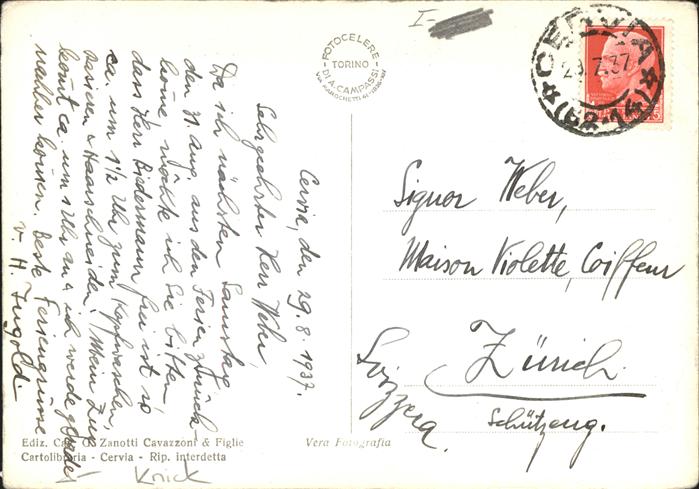 I-
FOTOCELERE
TORINO
DI A. CAMPASSI
CERVIA
29.7.37
Cervia, den 29.8.1937.
Sehr geehrter Herr Weber,
Da ich nächsten Samstag
den 31. Aug. aus den Ferien zurück
komme, möchte ich Sie bitten,
dass Herr Biedermann frei ist so
ca. um 1½ Uhr zum Kopfwaschen,
rasieren & Haarschneiden. Mein Zug
kommt ca. um 1 Uhr an & ich werde
nachher kommen. Beste Feriengrüsse
v. H. Ingold
Signor Weber,
Maison Violette, Coiffeur
Zürich.
Schützeng.
Svizzera.
Ediz. Zanotti Cavazzoni & Figlie
Cartolibraria - Cervia - Rip. interdetta
Vera Fotografia
Knick